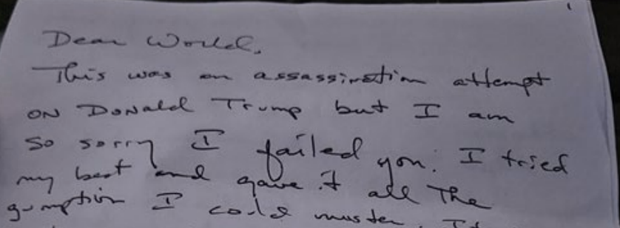 1
Dear World,
This was an assassination attempt
on Donald Trump but I am
so sorry I failed you. I tried
my best and gave it all the
gumption I could muster. It